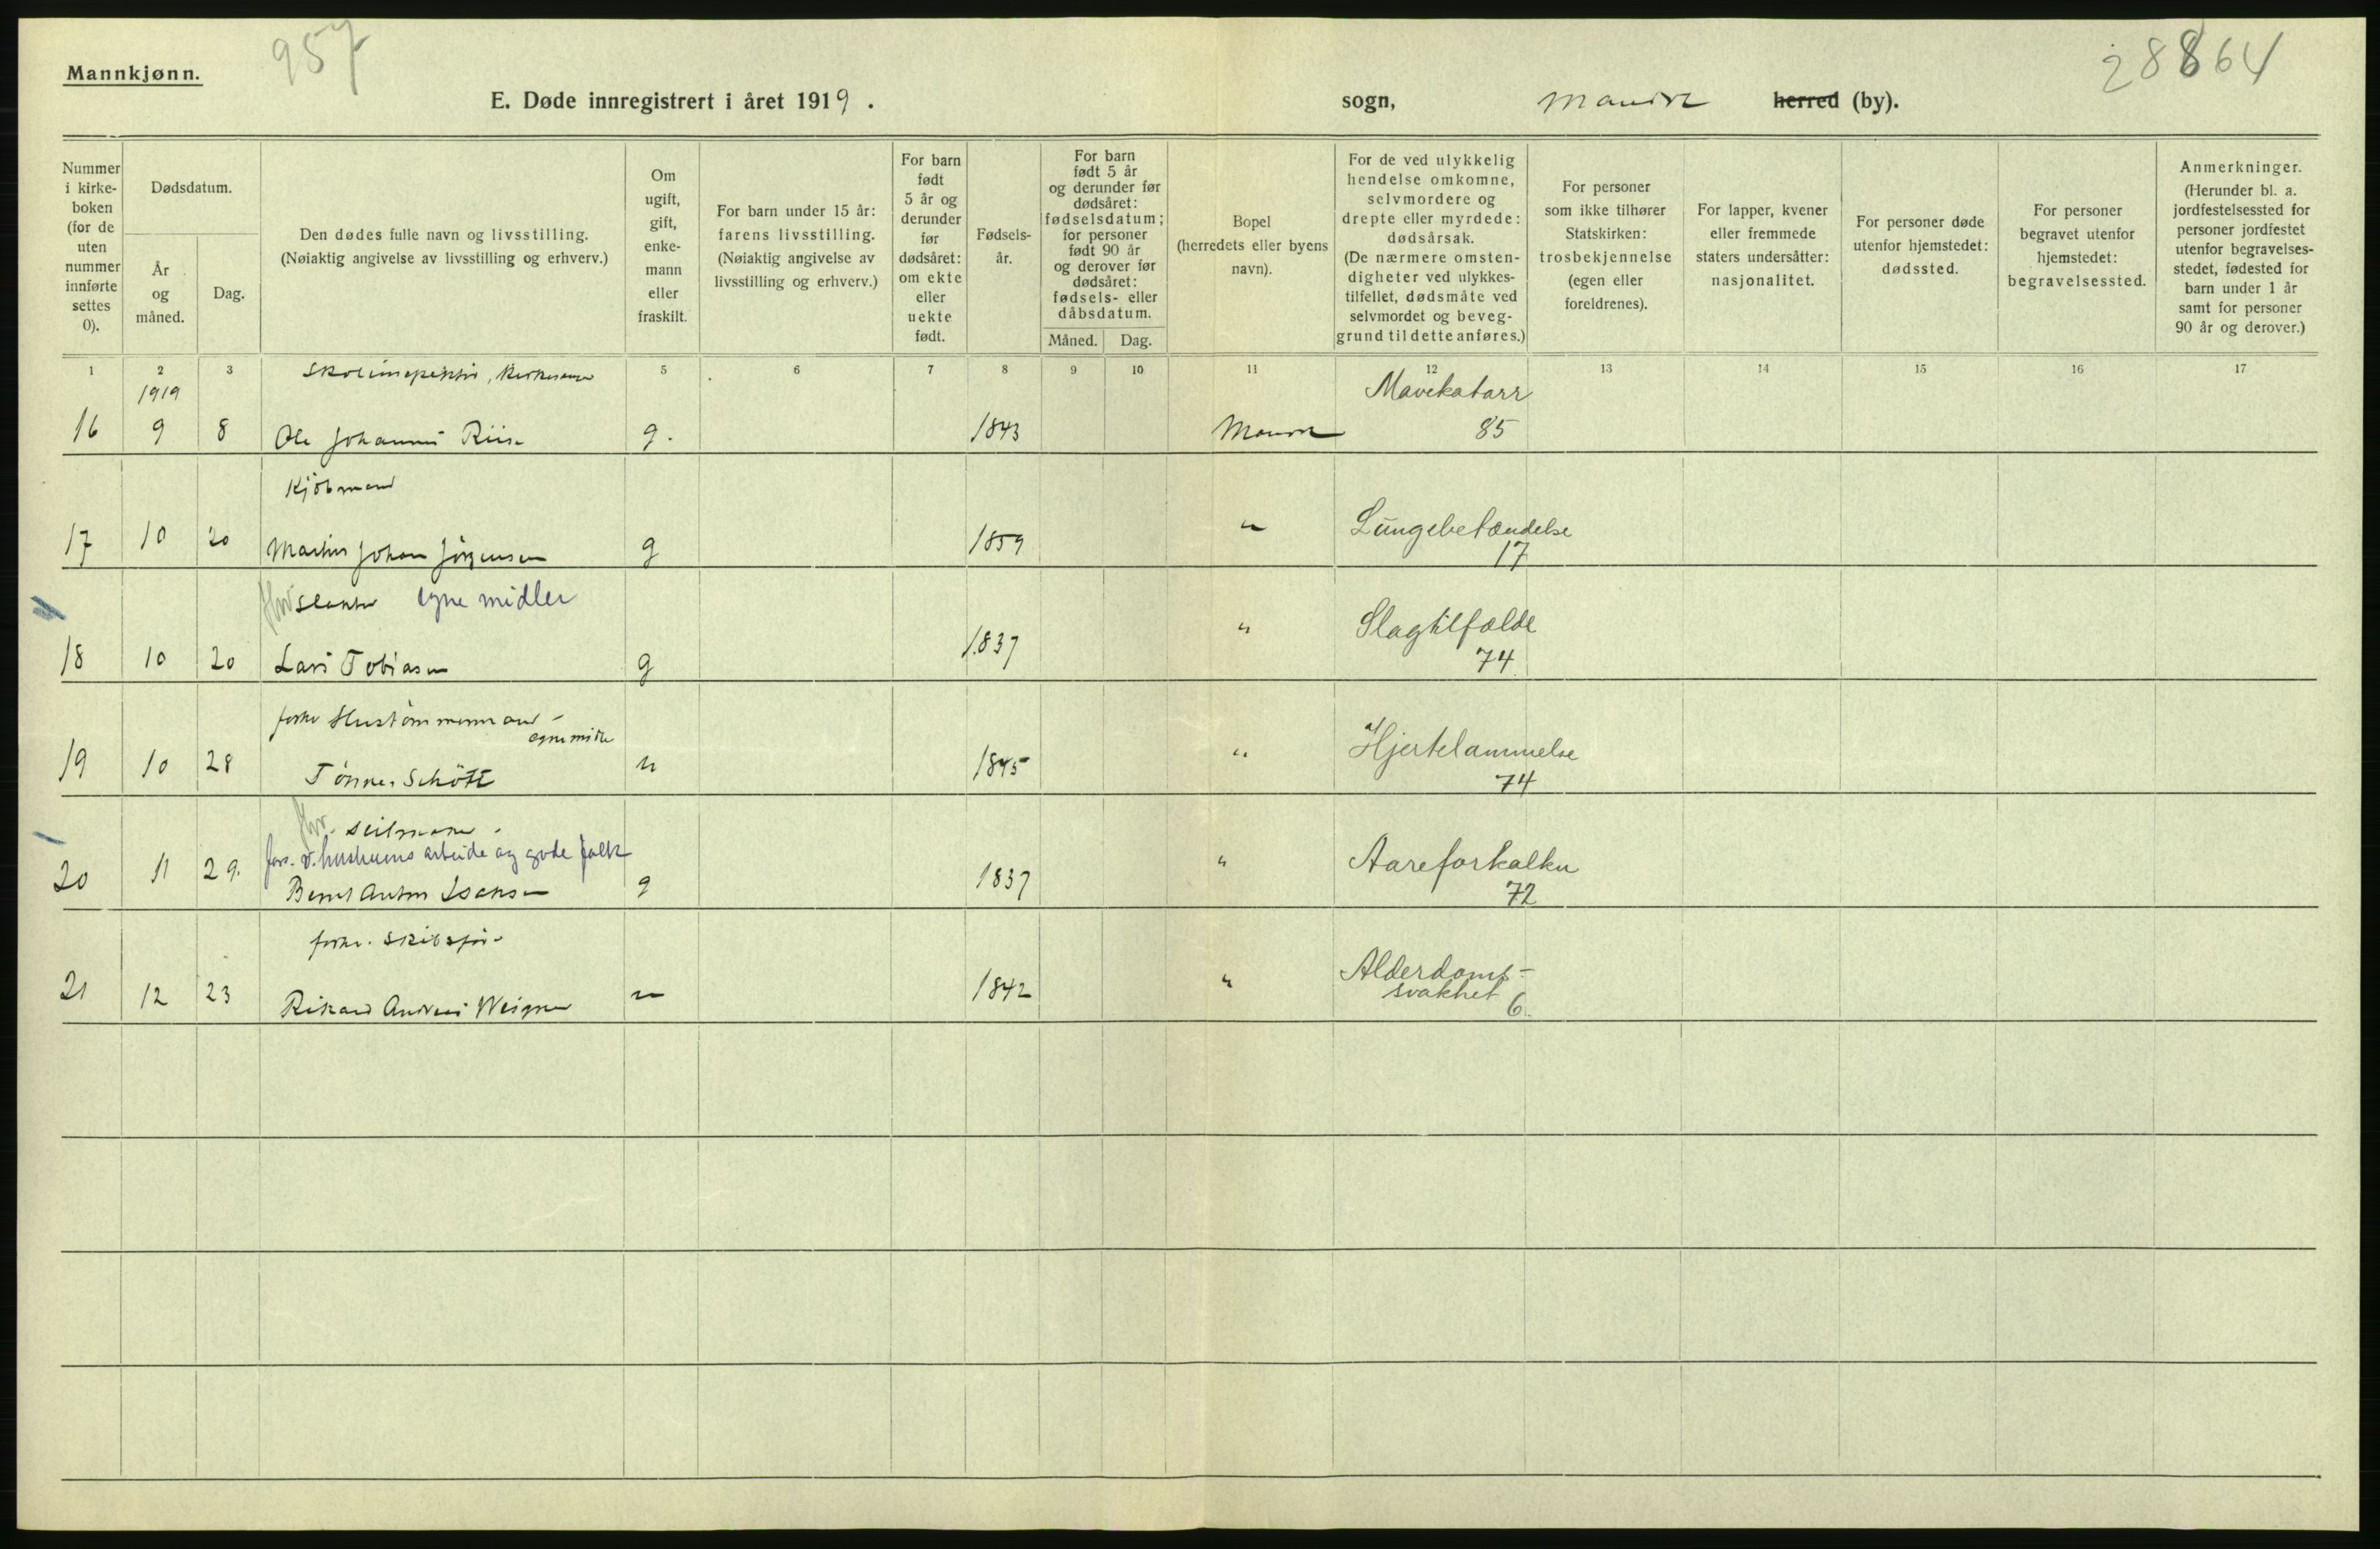 Mannkjønn.
957
28864
E. Døde innregistrert i året 1919.
sogn, herred (by).
Nummer i kirkeboken (for de uten nummer innførte settes 0).
Dødsdatum.
År og måned.
Dag.
Den dødes fulle navn og livsstilling.
(Nøiaktig angivelse av livsstilling og erhverv.)
Om ugift, gift, enkemann eller fraskilt.
For barn under 15 år: farens livsstilling.
(Nøiaktig angivelse av livsstilling og erhverv.)
For barn født 5 år og derunder før dødsåret: om ekte eller uekte født.
Fødselsår.
For barn født 5 år og derunder før dødsåret: fødselsdatum; for personer født 90 år og derover før dødsåret: fødsels- eller dåbsdatum.
Måned. Dag.
Bopel (herredets eller byens navn).
For de ved ulykkelig hendelse omkomne, selvmordere og drepte eller myrdede: dødsårsak.
(De nærmere omstendigheter ved ulykkestilfellet, dødsmåte ved selvmordet og beveggrund til dette anføres.)
For personer som ikke tilhører Statskirken: trosbekjennelse (egen eller foreldrenes).
For lapper, kvener eller fremmede staters undersåtter: nasjonalitet.
For personer døde utenfor hjemstedet: dødssted.
For personer begravet utenfor hjemstedet: begravelsessted.
Anmerkninger.
(Herunder bl. a. jordfestelsessted for personer jordfestet utenfor begravelsesstedet, fødested for barn under 1 år samt for personer 90 år og derover.)
1 2 3 5 6 7 8 9 10 11 12 13 14 15 16 17
1919
Mavekatarr
16 9 8 Ole Johannes Riise g. 1843 85
Kjøbmand
17 10 20 Martin Johan Jörgensen g 1859 " Lungebetændelse
17
egne midler
18 10 20 Lars Tobiasen g 1837 " Slagtilfælde
74
19 10 28 Tönnes Schött u 1845 " Hjertelammelse
74
fors. v. hustruens arbeide og gode folk
20 11 29. Bernt Anton Isaksen g 1837 " Aareforkalkn
72
21 12 23 Rikard Andreas 1842 " Alderdoms-
svakhet 6.